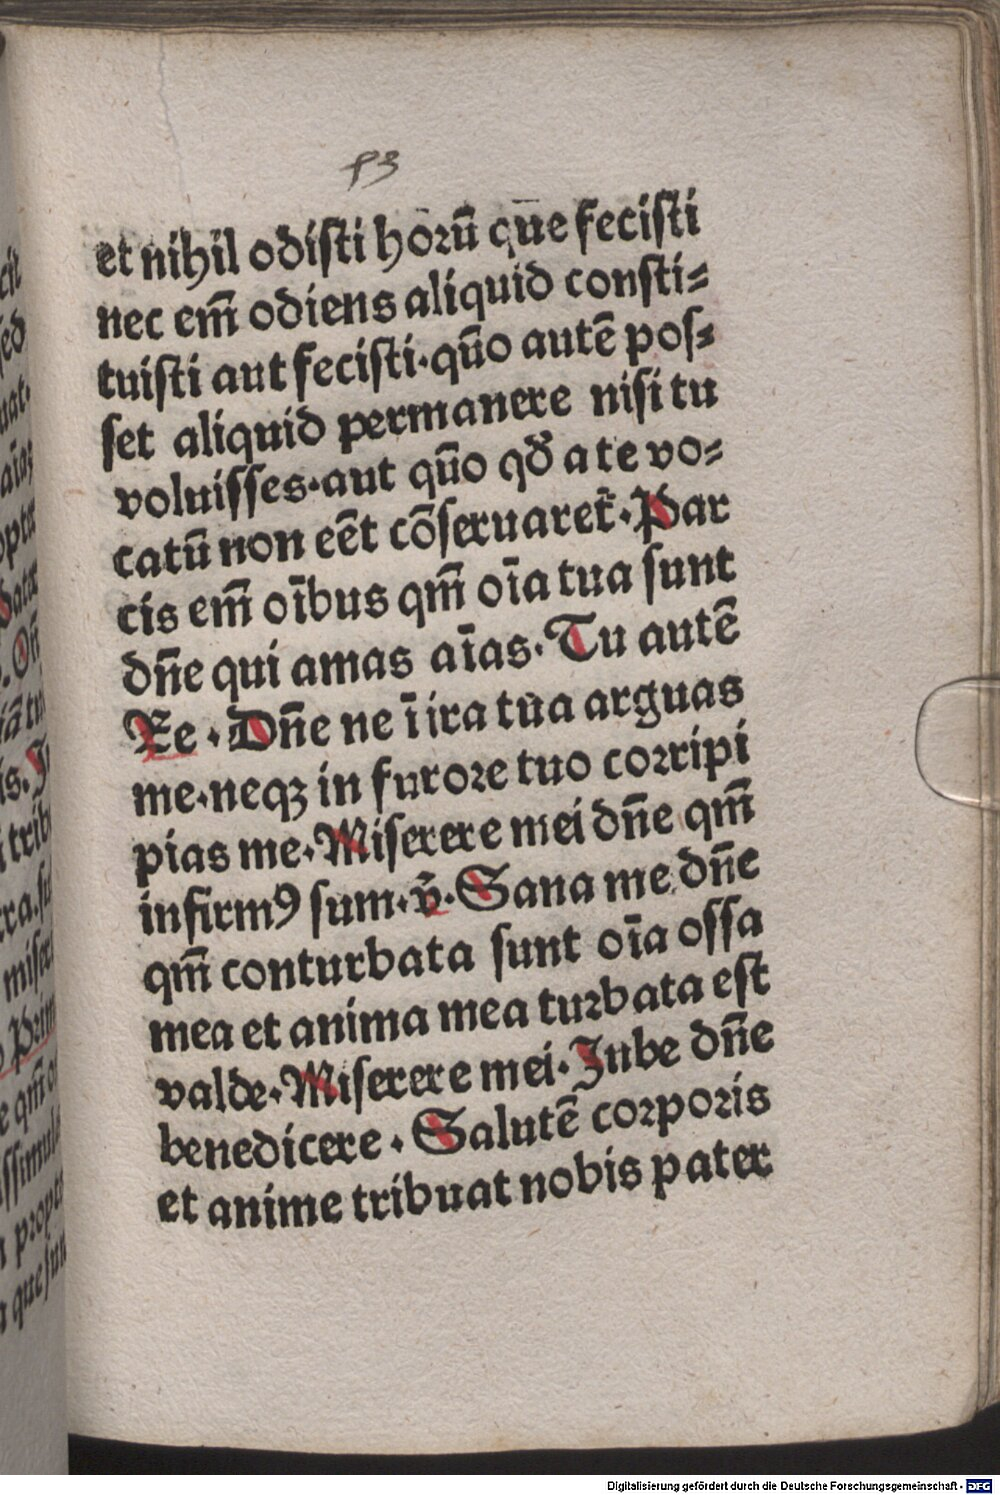 93
et nihil odisti horū que fecisti
nec em̄ odiens aliquid consti⸗
tuisti aut fecisti·qūo autē pos⸗
set aliquid permanere nisi tu
voluisses·aut qūo qđ a te vo⸗
catū non eēt cōseruaret̄·Par
cis em̄ oībus qm̄ oīa tua sunt
dn̄e qui amas aīas·Tu autē
Re·Dn̄e ne ī ira tua arguas
me·neqꝫ in furore tuo corripi
pias me·Miserere mei dn̄e qm̄
infirmꝰ sum·v̄·Sana me dn̄e
qm̄ conturbata sunt oīa ossa
mea et anima mea turbata est
valde·Miserere mei·Jube dn̄e
benedicere·Salutē corporis
et anime tribuat nobis pater
Digitalisierung gefördert durch die Deutsche Forschungsgemeinschaft - DFG